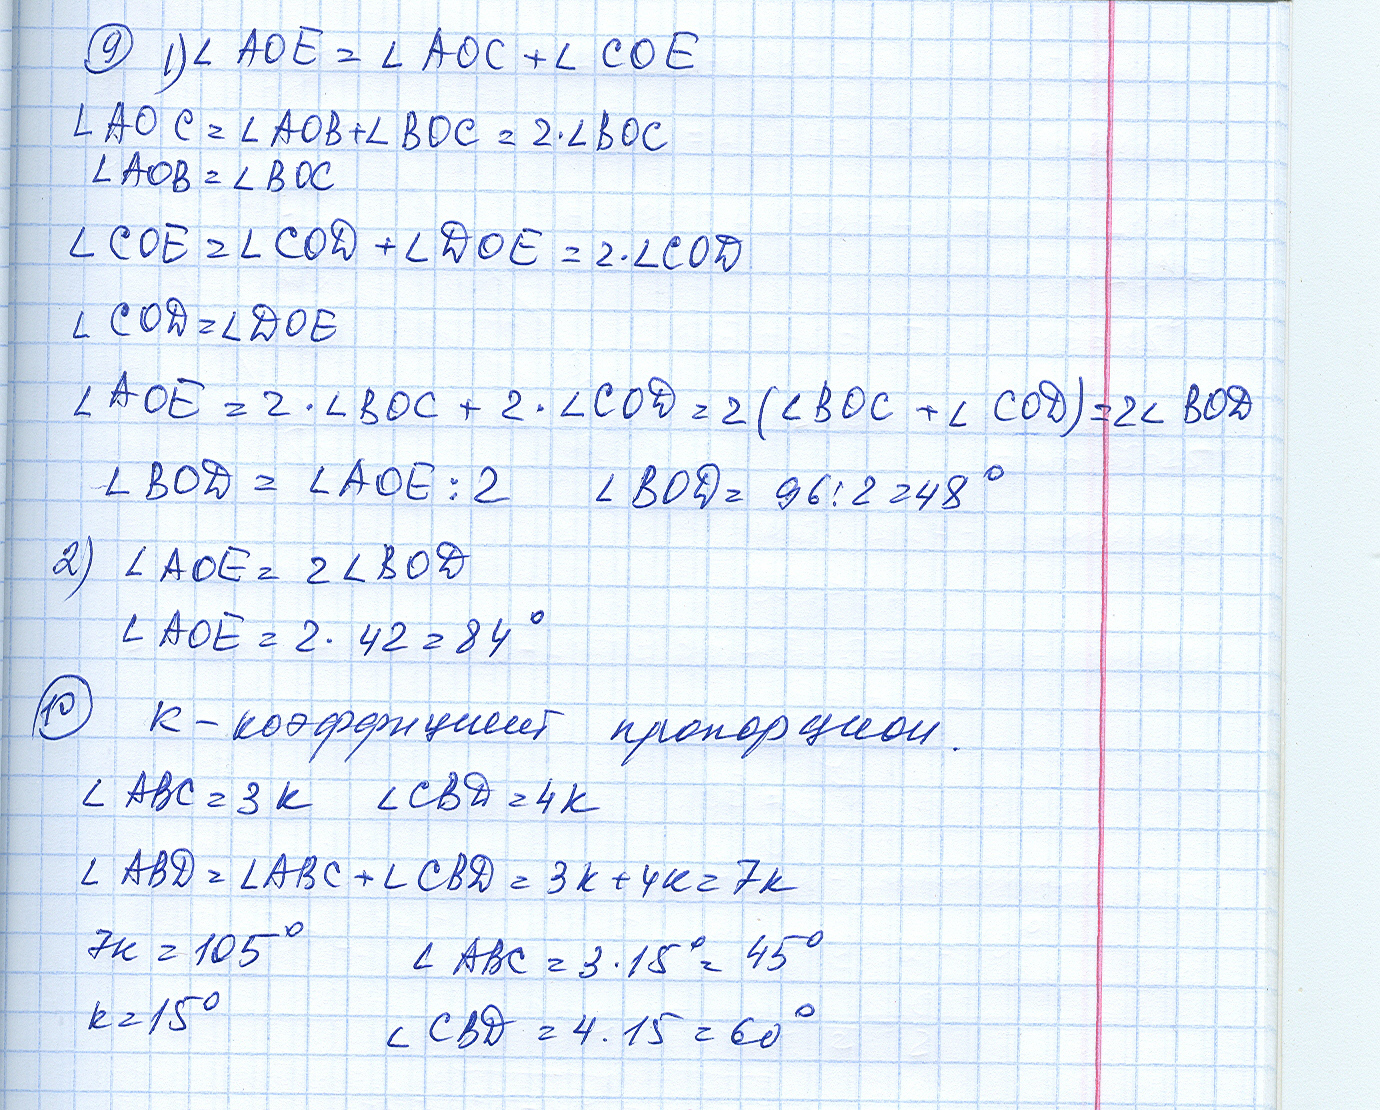 9 1) ∠ AOE = ∠ AOC + ∠ COE
∠AOC = ∠AOB + ∠BOC = 2·∠BOC
∠AOB = ∠BOC
∠COE = ∠COD + ∠DOE = 2·∠COD
∠COD = ∠DOE
∠AOE = 2·∠BOC + 2·∠COD = 2(∠BOC + ∠COD) = 2∠BOD
∠BOD = ∠AOE : 2 ∠BOD = 96 : 2 = 48°
2) ∠AOE = 2∠BOD
∠AOE = 2· 42 = 84°
10 к – коэффициент пропорцион.
∠ABC = 3к ∠CBD = 4к
∠ABD = ∠ABC + ∠CBD = 3к + 4к = 7к
7к = 105° ∠ABC = 3·15° = 45°
к = 15° ∠CBD = 4·15 = 60°